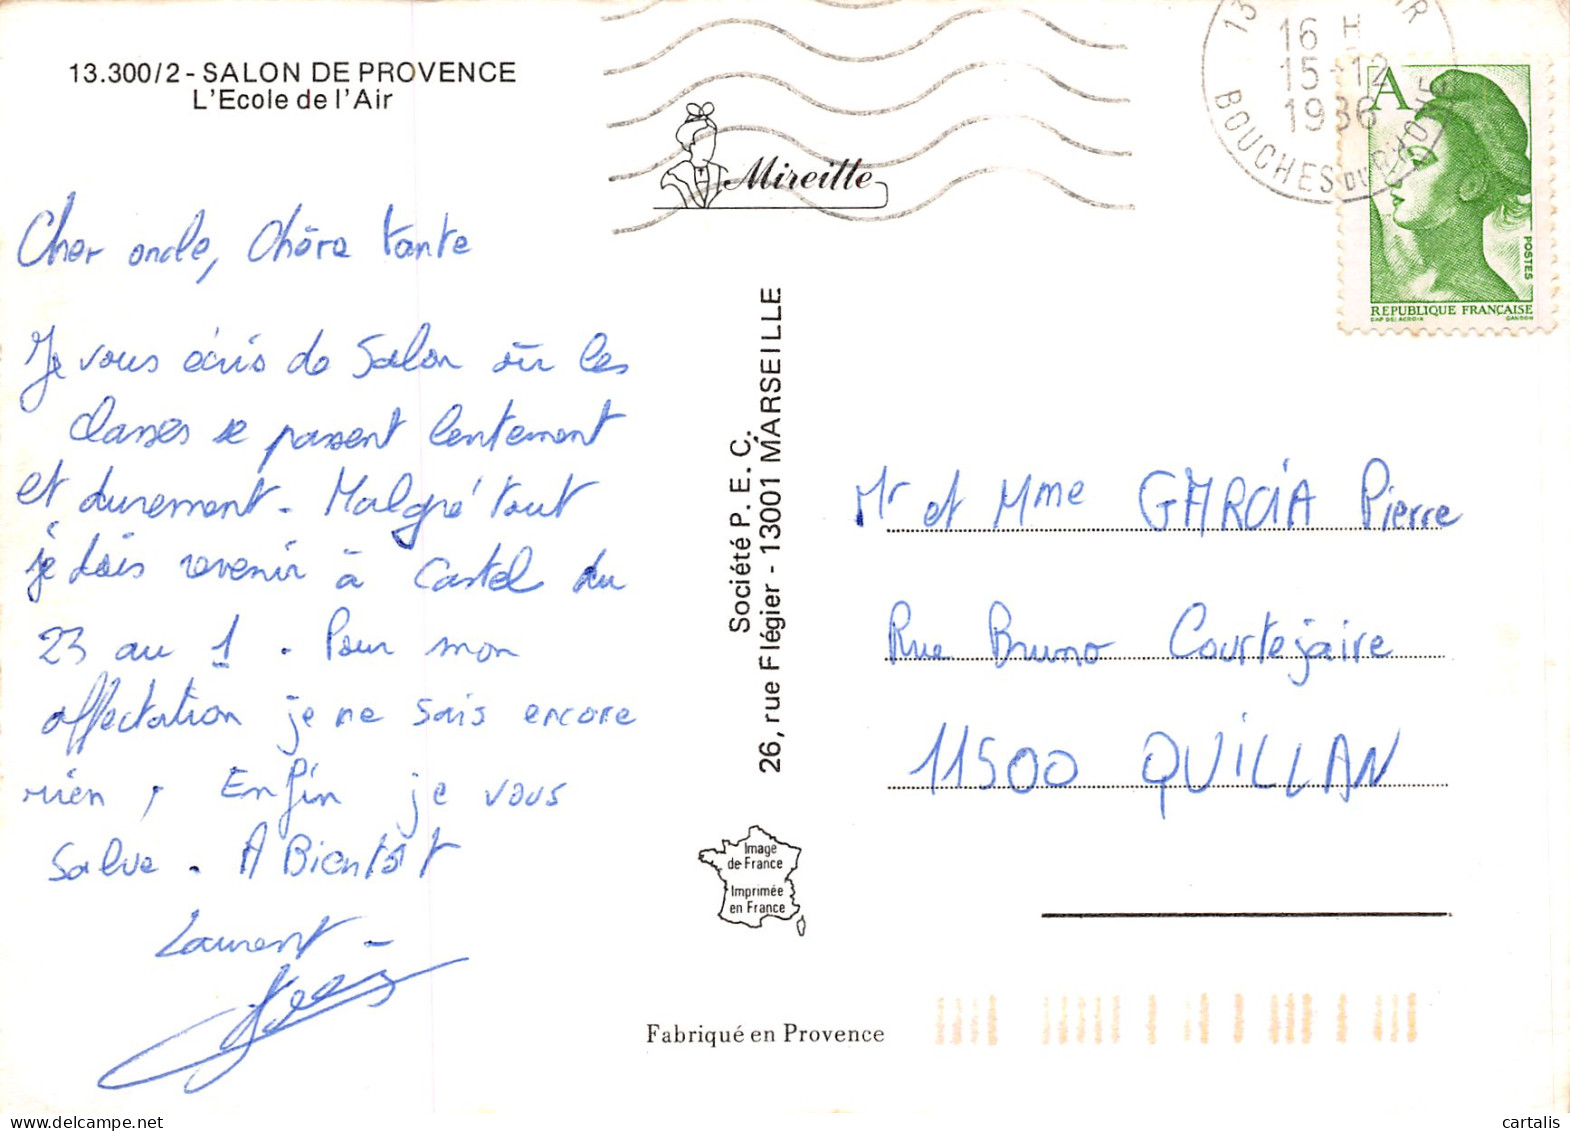 13.300/2 - SALON DE PROVENCE
L'Ecole de l'Air
Mireille
Cher oncle, Chère tante
Je vous écris de Salon où les
classes se passent lentement
et durement. Malgré tout
je dois revenir à Castel du
23 au 1. Pour mon
affectation je ne sais encore
rien, Enfin je vous
salue. A Bientôt
Laurent -
Société P. E. C.
26, rue Flégier - 13001 MARSEILLE
Image
de France
Imprimée
en France
Fabriqué en Provence
16 H
15-12
1986
BOUCHES DU RHONE
A
POSTES
REPUBLIQUE FRANÇAISE
Mr et Mme GARCIA Pierre
Rue Bruno Courtejaire
11500 QUILLAN
cartalis